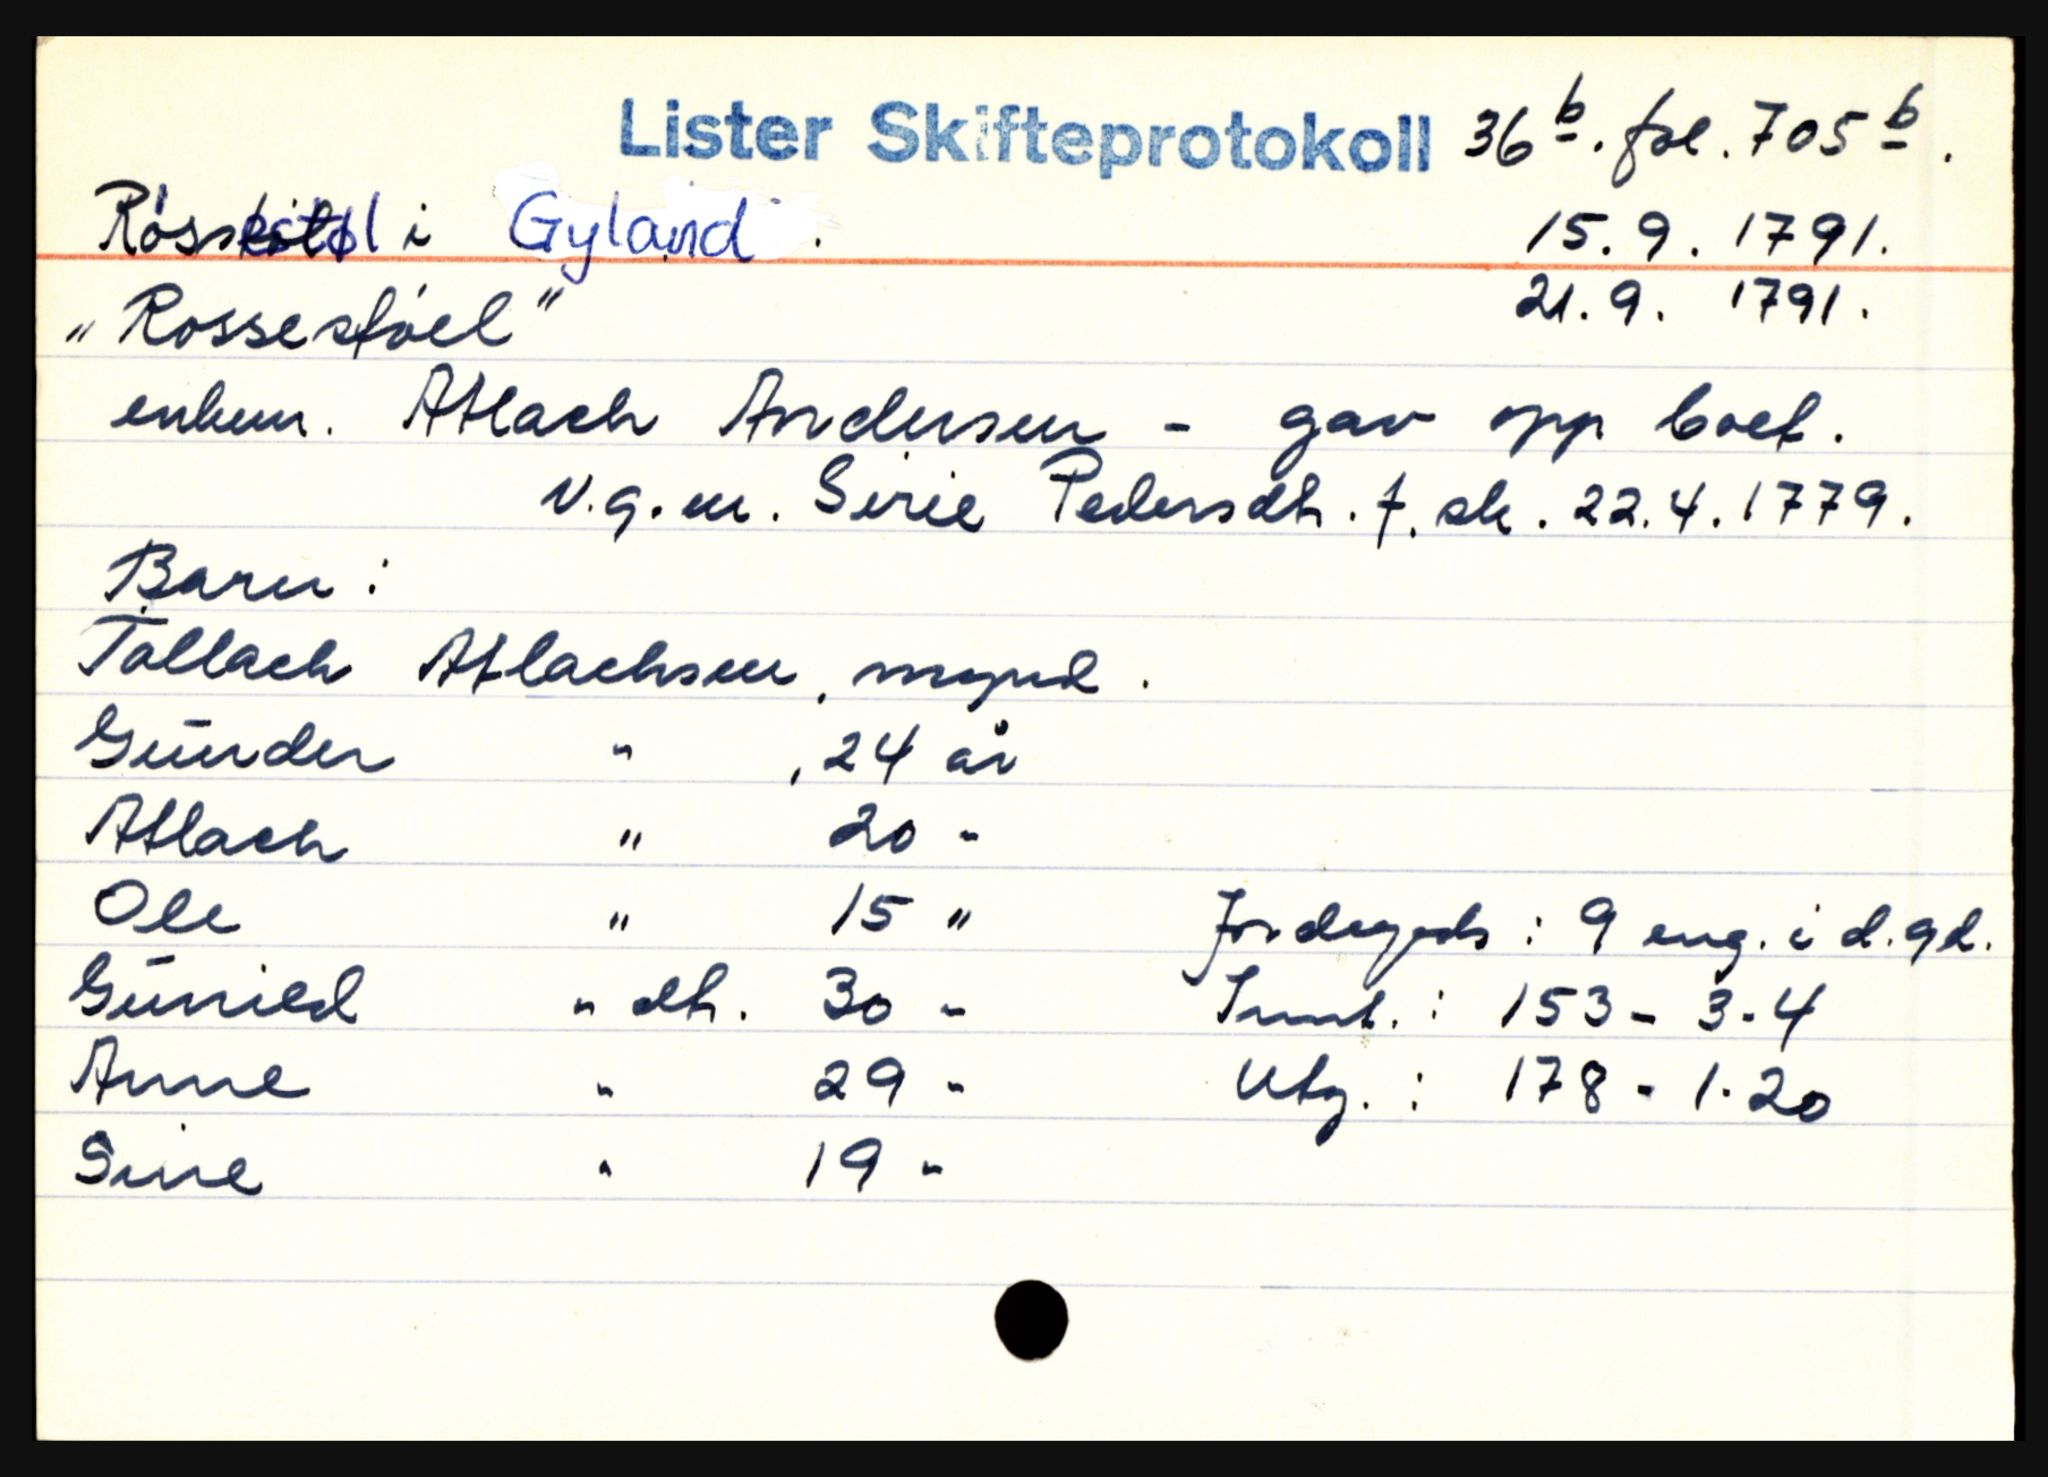 Lister Skifteprotokoll 36 b. fol. 705 b.
Røssestøl i Gyland. 15.9. 1791.
"Rossestøel" 21.9. 1791.
enkem. Atlach Andersen - gav opp boet.
v.g.m. Sirie Pedersdh. f. sk. 22.4.1779.
Barn:
Tollach Atlachsen, mynd.
Gunder " , 24 år
Atlach " 20 "
Ole " 15 " Jordegods: 9 eng. i d. gd.
Gunild " dh. 30 " Innt.: 153 - 3 - 4
Anne " 29 " Utg.: 178 - 1 - 20
Sirie " 19 "